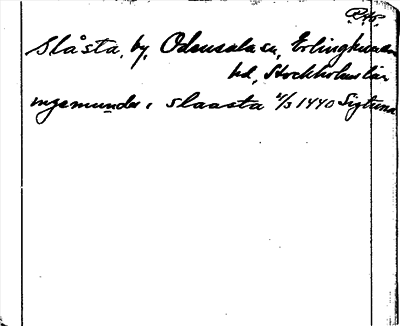 Slåsta, by, Odensala sn, Erlinghundra
hd, Stockholms län
ingemunder i slaasta 4/3 1440 Sigtuna